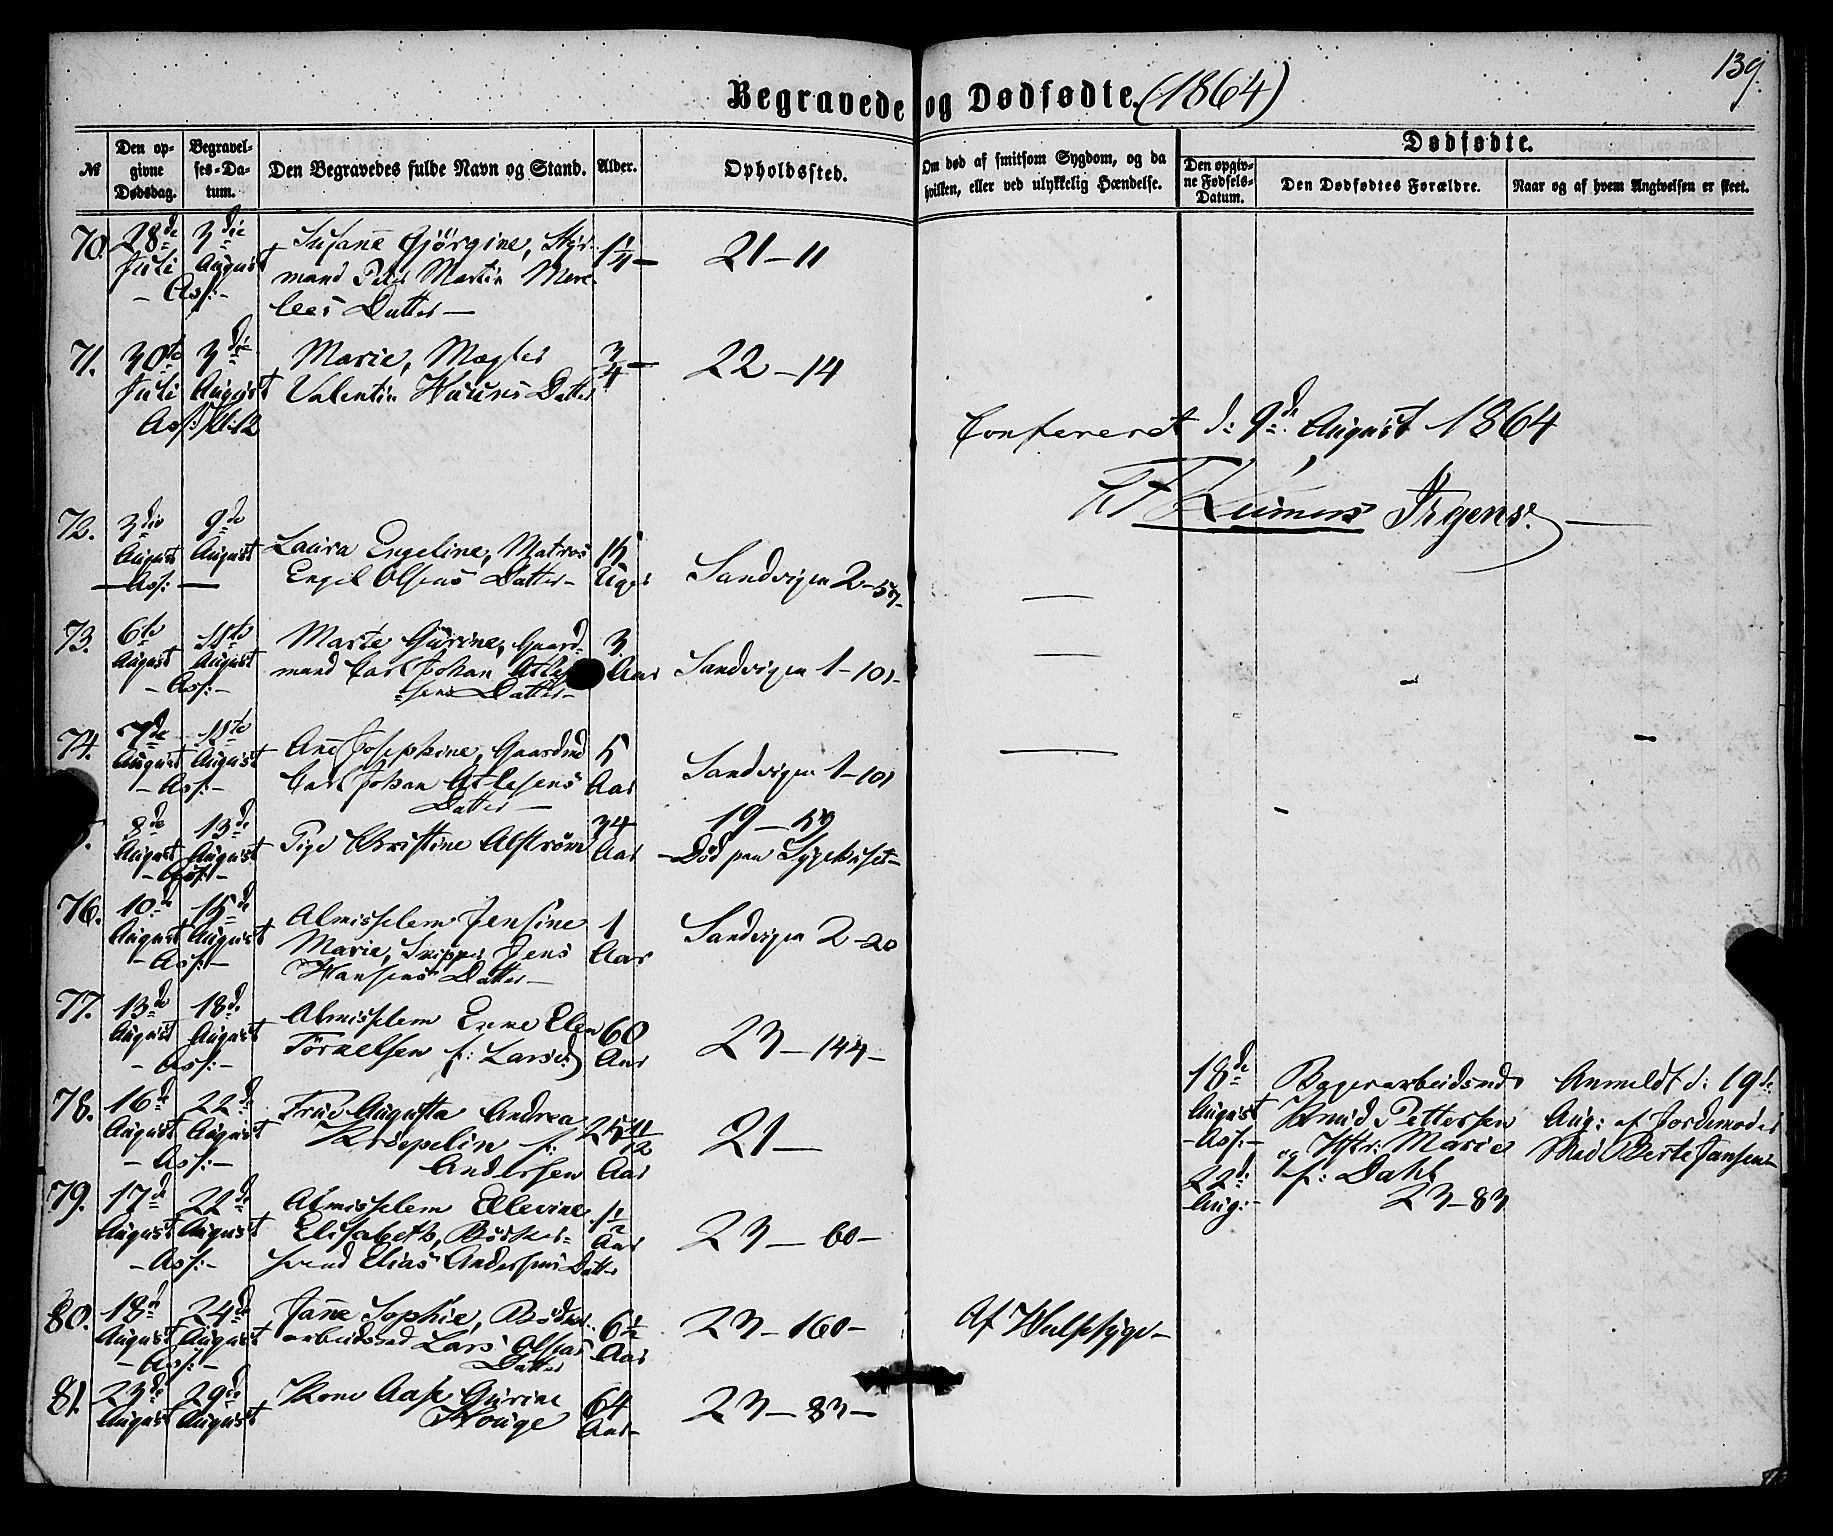 139.
Begravede og Dødfødte. (1864)
№
Den opgivne Dødsdag.
Begravelses-Datum.
Den Begravedes fulde Navn og Stand.
Alder.
Opholdssted.
Om død af smitsom Sygdom, og da hvilken, eller ved ulykkelig Hændelse.
Dødfødte.
Den opgivne Fødsels-Datum.
Den Dødfødtes Forældre.
Naar og af hvem Angivelsen er skeet.
70. 28de 3die Susane Gjørgine, Styr- 1/4 21–11
Juli August mand Peter Martin
– Ass: – Datter
71. 30te 3die Marie, Mægler 3/4 22–14
Juli August Valentin Datter
Ass: Kl: 12
Confereret d: 9de August 1864
Irgens.
72. 3die 9de Laura Engeline, Matros 15
August August Engel Olsens Datter – Uger Sandvigen 2–57–
– Ass: –
73. 6te 11te Marie Gurine, Gaard- 3
August August mand Carl Johan Aar Sandvigen 1–101–
– Ass: – sens Datter –
74. 7de 11te Ane Josephine, Gaardmd 5
August August Carl Johan Atlesens Aar Sandvigen 1–101
– Ass: – Datter –
8de 13de Pige Christine Alstrøm 34 19–59
August August Aar – Død paa Sygehuset –
– Ass: –
76. 10de 15de Almisselem Jensine 1 Sandvigen 2–20
August August Marie, Skipper Jens Aar
– Ass: – Hansens Datter –
77. 13de 18de Almisselem Enne Elen 60 23–144–
August August Tørnelsen f: Larsen Aar
– Ass: –
78. 16de 22de Frue Augusta Andrea 25 11/12 21 –
August August Krøepelin f:
– Ass: – Andersen Aar
18de Bageraarbeidsmd Anmeldt d: 19de
August Knud Pettersen Aug: af Jordemoder
– Ass: – og Hstr: Marie Mad Berte Jansen –
22de f: Dahl
Aug: – 23–83
79. 17de 22de Almisselem Ellevine 1 1/2
August August Elisabeth, Bødker- Aar 23–60–
– Ass: – svend Elias Andersens Datter
80. 18de 24de Jane Sophie, 6 1/2 23–160– Af Halssyge –
August August arbeidsmd Lars Olsens Aar
– Ass: – Datter
81. 23de 29de Kone Aase Gurine 64 23–83–
August August Houge Aar –